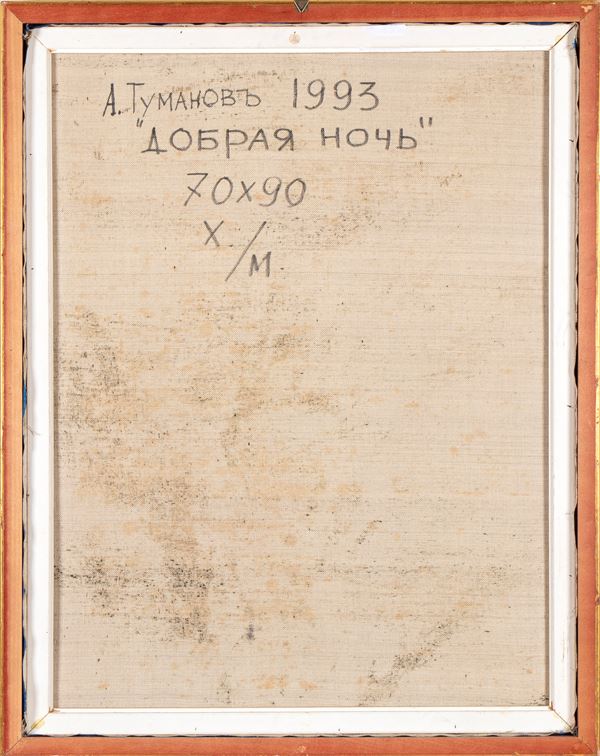 А. Тумановъ 1993
"ДОБРАЯ НОЧЬ"
70х90
Х/М